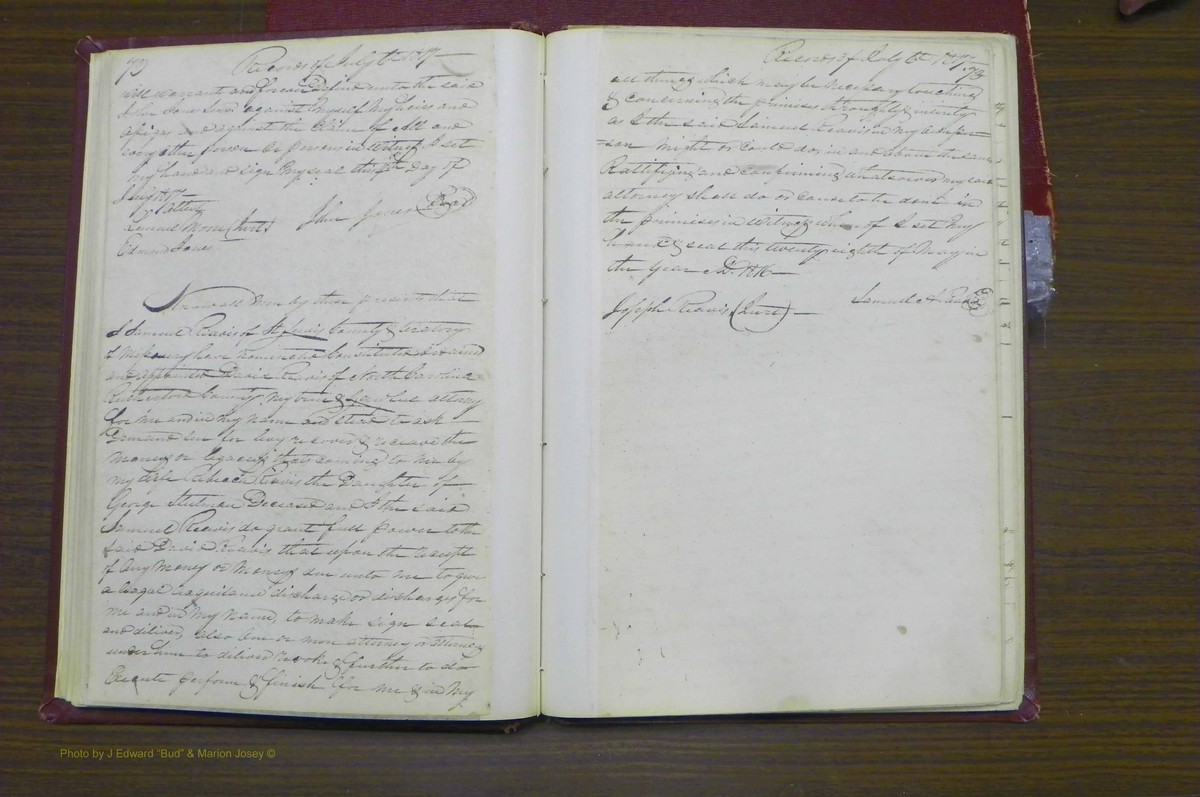 73 Records of July Ct 1817
will warrant and forever Defend unto the said
John Jones Senr against myself my heirs and
asigns and against the Claim of All and
every other person or persons in witness I set
my hand and sign my seal this 8th Day of
July
Attest
Lemuel Moore (Jurt) John Jones (Seal)
Edmund Jones
Know all Men by these presents that
I Samuel Reavis of St Louis County & teritory
of Missoury have nominated Constituted ordained
and appointed David Reavis of North Carolina
Rutherford County my true & Lawful attorny
for me and in my name and stead to ask
Demand sue for levy recover & receave the
money or legacy thats coming to me by
my wife Rebecca Reavis the Daughter of
George Deceased and I the said
Samuel Reavis do grant full power to the
said David Reavis that upon the receipt
of any money or moneys due unto me to give
a leagal acquitance discharge or discharges for
me and in my name, to make sign seal
and diliver, also one or more attorney or attorneys
under him to diliver revoke & further to do
Execute perform & finish for me & in my
Records of July Ct 1817 73
all things which may be necessary touching
& concerning the primises throughly & intirely
as I the said Samuel Reavis in my own per=
=son might or could do in and about the same
Ratifying and confirming whatsoever my said
attorney shall do or cause to be done in
the primises in witness whereof I set my
hand & seal this twenty eighth of May in
the year AD. 1816
Joseph Reavis (Jurt) Samuel Reavis (Seal)
Photo by J Edward "Bud" & Marion Josey ©